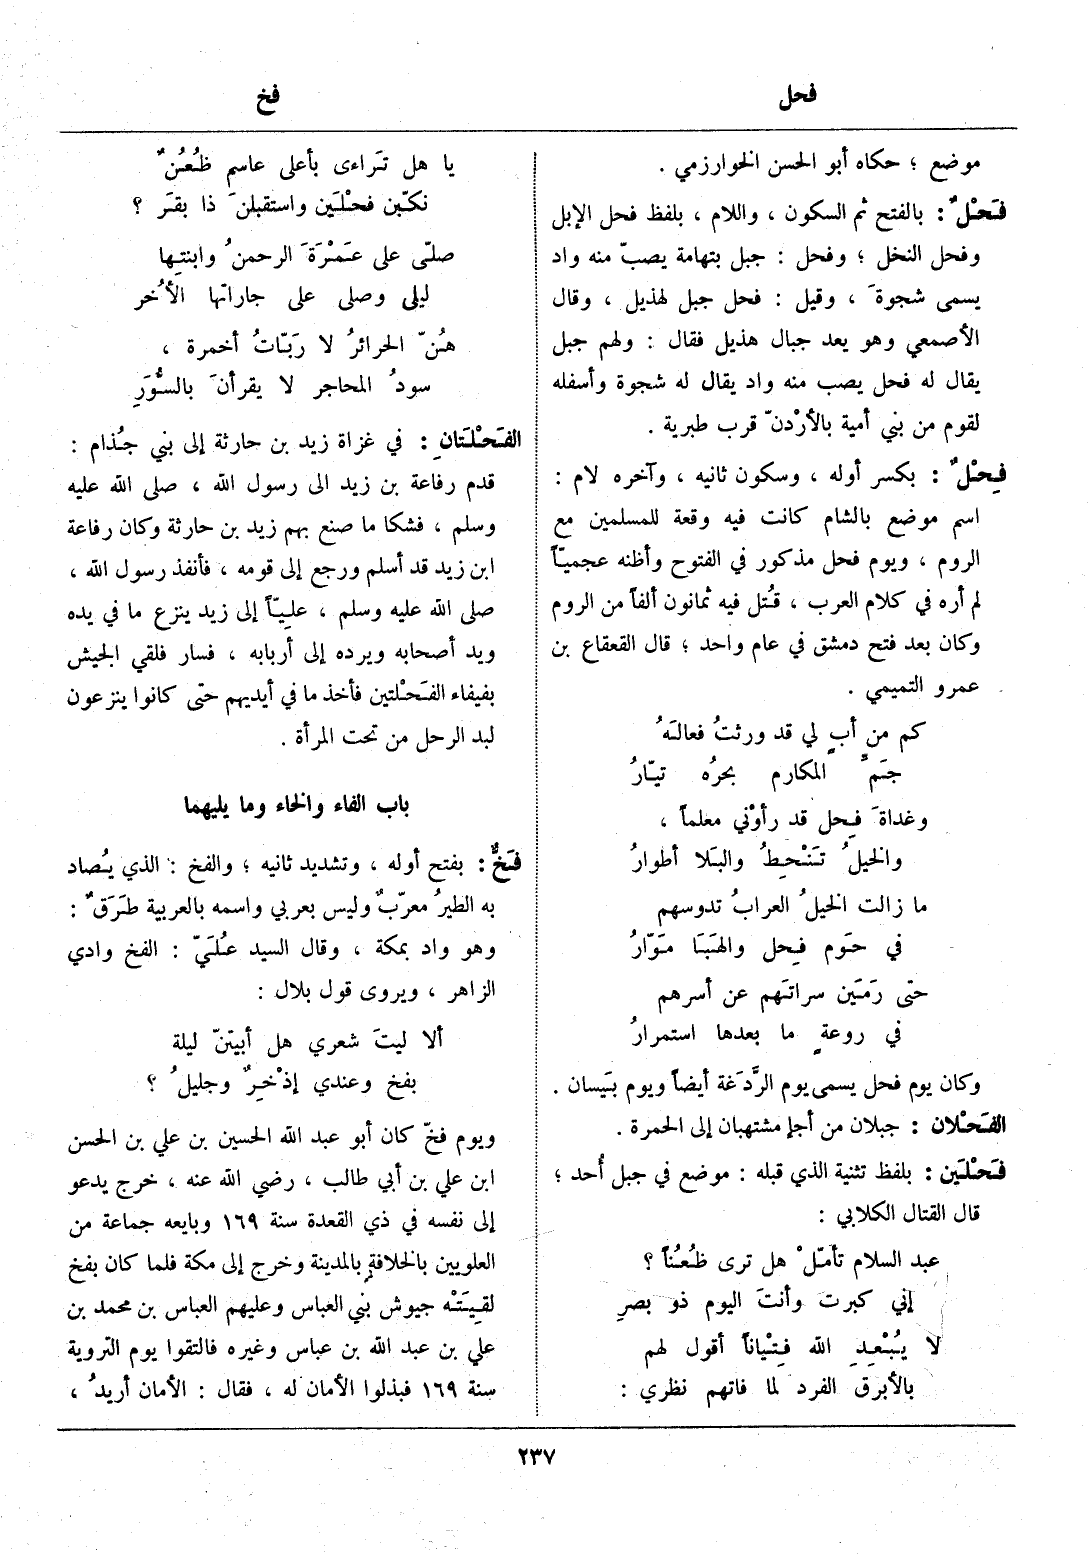 فحل
فخ
موضع ؛ حكاه أبو الحسن الخوارزمي .
فَحْلٌ : بالفتح ثم السكون ، واللام ، بلفظ فحل الإبل
وفحل النخل ؛ وفحل : جبل بتهامة يصبّ منه واد
يسمى شجوةَ ، وقيل : فحل جبل لهذيل ، وقال
الأصمعي وهو يعد جبال هذيل فقال : ولهم جبل
يقال له فحل يصب منه واد يقال له شجوة وأسفله
لقوم من بني أمية بالأرْدنّ قرب طبرية .
فِحْلٌ : بكسر أوله ، وسكون ثانيه ، وآخره لام :
اسم موضع بالشام كانت فيه وقعة للمسلمين مع
الروم ، ويوم فحل مذكور في الفتوح وأظنه عجميّاً
لم أره في كلام العرب ، قُتل فيه ثمانون ألفاً من الروم
وكان بعد فتح دمشق في عام واحد ؛ قال القعقاع بن
عمرو التميمي .
كم من أبٍ لي قد ورثتُ فعالَهُ
جَمّ المكارم بحرُه تيّارُ
وغداةَ فِحل قد رأوْني معلماً ،
والخيلُ تَنْحِطُ والبَلا أطوارُ
ما زالت الخيلُ العرابُ تدوسهم
في حَوم فِحل والهَبَا مَوّارُ
حتى رَمَين سراتَهم عن أسرهم
في روعةٍ ما بعدها استمرارُ
وكان يوم فحل يسمى يوم الرَّدَغة أيضاً ويوم بَيسان .
الفَحْلان : جبلان من أجإ مشتهبان إلى الحمرة .
فَحْلَين : بلفظ تثنية الذي قبله : موضع في جبل أُحد ؛
قال القتال الكلابي :
عبد السلام تأمّلْ هل ترى ظُعُناً ؟
إني كبرت وأنتَ اليوم ذو بصرِ
لا يُبْعِدِ الله فِتْياناً أقول لهم
بالأبرق الفرد لما فاتهم نظري :
يا هل تَراءى بأعلى عاسم ظُعُنٌ
نكّبن فحْلَين واستقبلنَ ذا بقَر ؟
صلّى على عَمْرَةَ الرحمنُ وابنتِها
ليلى وصلى على جاراتها الأُخر
هُنّ الحرائرُ لا رَبّاتُ أخمرة ،
سودُ المحاجر لا يقرأنَ بالسُّوَرِ
الفَحْلَتانِ : في غزاة زيد بن حارثة إلى بني جُذام :
قدم رفاعة بن زيد الى رسول الله ، صلى الله عليه
وسلم ، فشكا ما صنع بهم زيد بن حارثة وكان رفاعة
ابن زيد قد أسلم ورجع إلى قومه ، فأنفذ رسول الله ،
صلى الله عليه وسلم ، عليّاً إلى زيد ينزع ما في يده
ويد أصحابه ويرده إلى أربابه ، فسار فلقي الجيش
بفيفاء الفَحْلتين فأخذ ما في أيديهم حتى كانوا ينزعون
لبد الرحل من تحت المرأة .
باب الفاء والخاء وما يليهما
فَخٌّ : بفتح أوله ، وتشديد ثانيه ؛ والفخ : الذي يُصاد
به الطيرُ معرّبٌ وليس بعربي واسمه بالعربية طَرَقٌ :
وهو واد بمكة ، وقال السيد عُلَيّ : الفخ وادي
الزاهر ، ويروى قول بلال :
ألا ليتَ شعري هل أبيتنّ ليلة
بفخ وعندي إذْخِرٌ وجليلُ ؟
ويوم فخّ كان أبو عبد الله الحسين بن علي بن الحسن
ابن علي بن أبي طالب ، رضي الله عنه ، خرج يدعو
إلى نفسه في ذي القعدة سنة ١٦٩ وبايعه جماعة من
العلويين بالخلافةِ بالمدينة وخرج إلى مكة فلما كان بفخ
لقيَتْه جيوش بني العباس وعليهم العباس بن محمد بن
علي بن عبد الله بن عباس وغيره فالتقوا يوم التروية
سنة ١٦٩ فبذلوا الأمان له ، فقال : الأمان أريدُ ،
٢٣٧